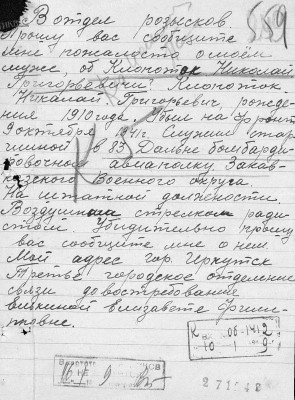 В отдел розысков
Прошу вас сообщите
мне пожалоста о моём
муже, об Клопоток Николай
Григорьевичи. Клопоток
Николай Григорьевич, рожде-
ния 1910 года. Убыл на фронт
9 октября 1941 г. Служил стар-
шиной в 83 Дальне бомбарди-
ровочном авиаполку Закав-
казского Военного округа
На штатной должности.
Воздушным стрелком ради-
стом. Убидительно прошу
вас сообщите мне о нем
Мой адрес гор. Иркутск
Третье городское отделение
связи до востребования
Елизавете